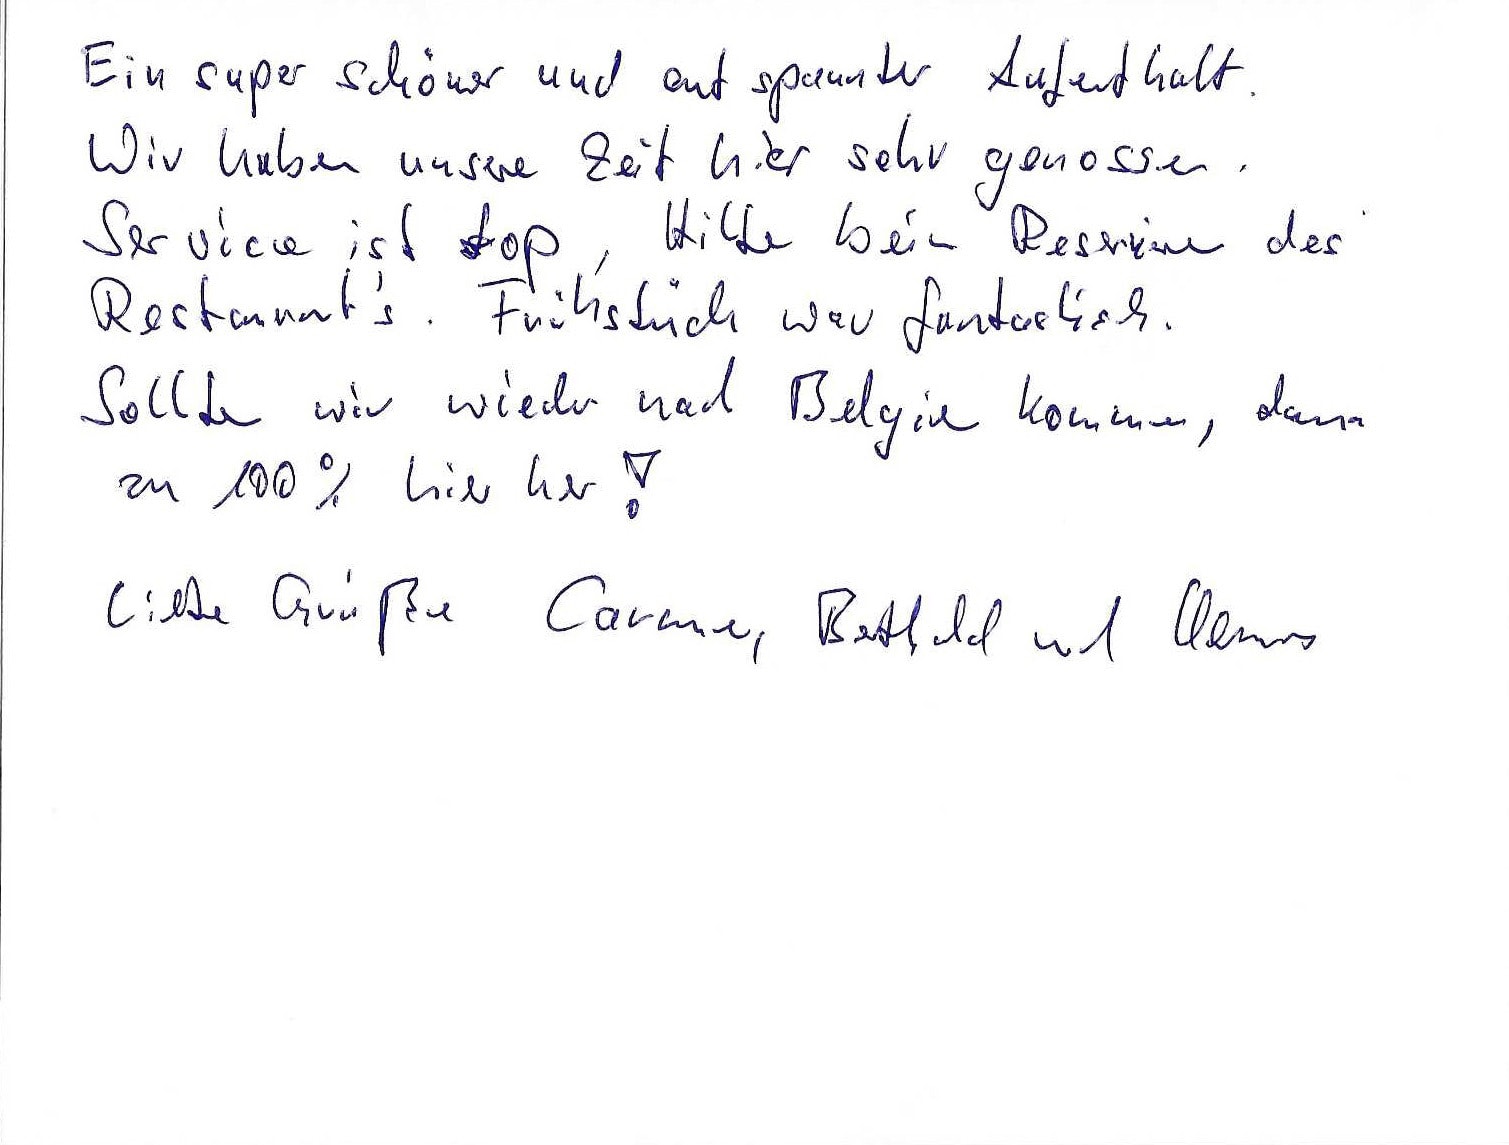 Ein super schöner und entspannter Aufenthalt.
Wir haben unsere Zeit hier sehr genossen.
Service ist top, Hilfe beim Reservieren des
Restaurant's. Frühstück war fantastisch.
Sollten wir wieder nach Belgien kommen, dann
zu 100% hier her!
Liebe Grüße und